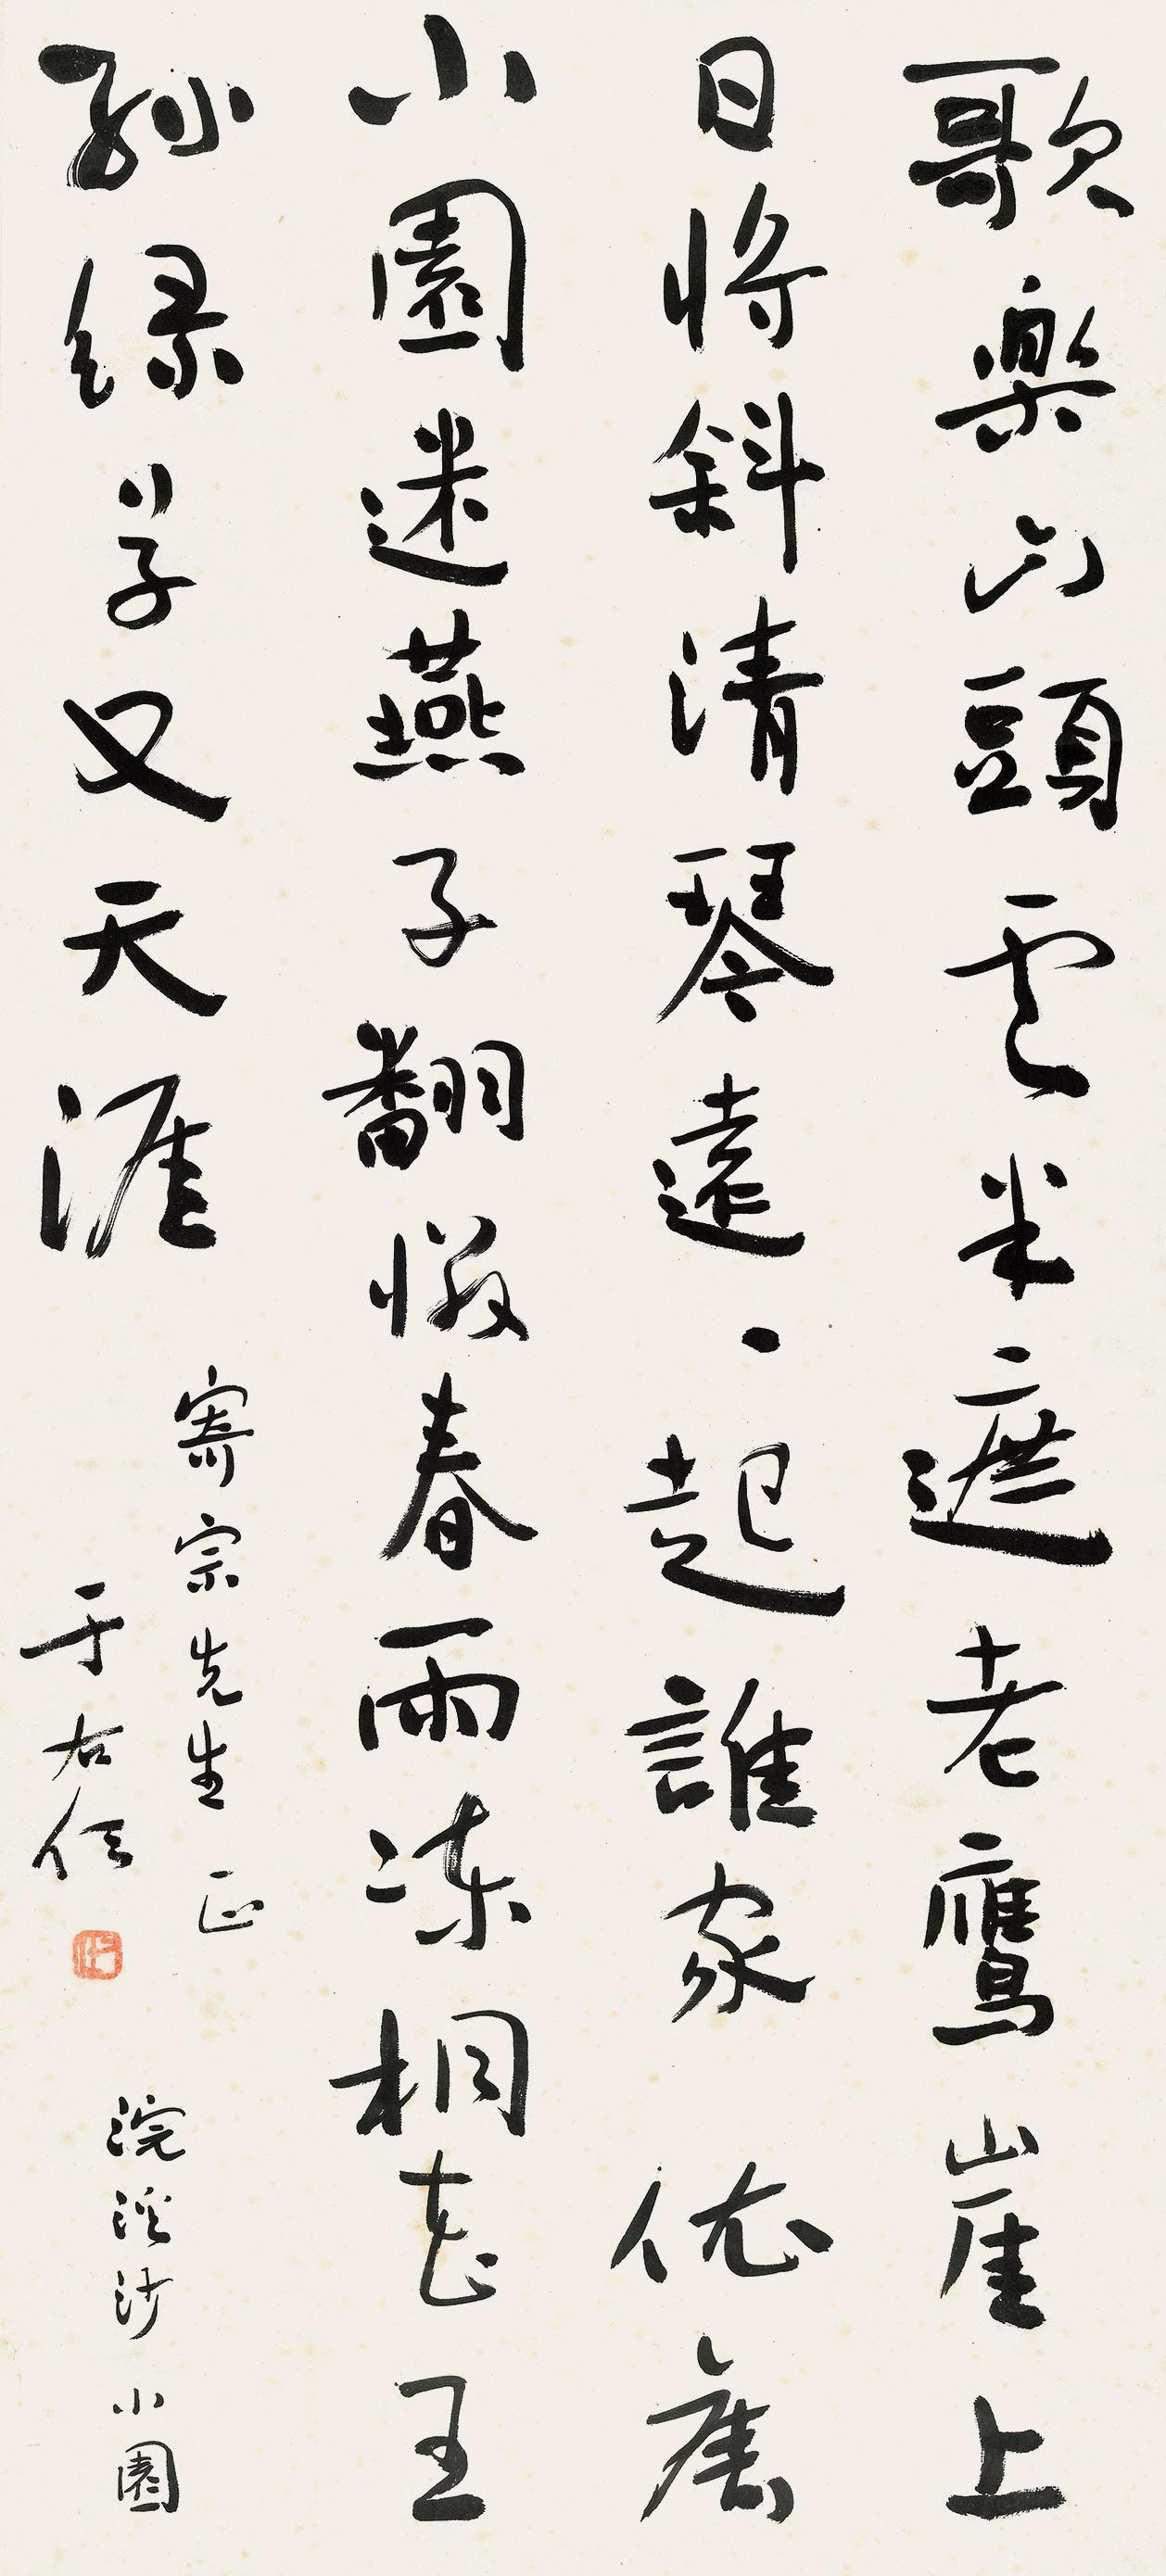 歌樂山頭雲半遮老鷹崖上
日將斜清琴遠遠起誰家依舊
小園迷燕子翻憐春雨凍桐花王
孫綠草又天涯
寄宗先生正
于右任
浣溪沙小園